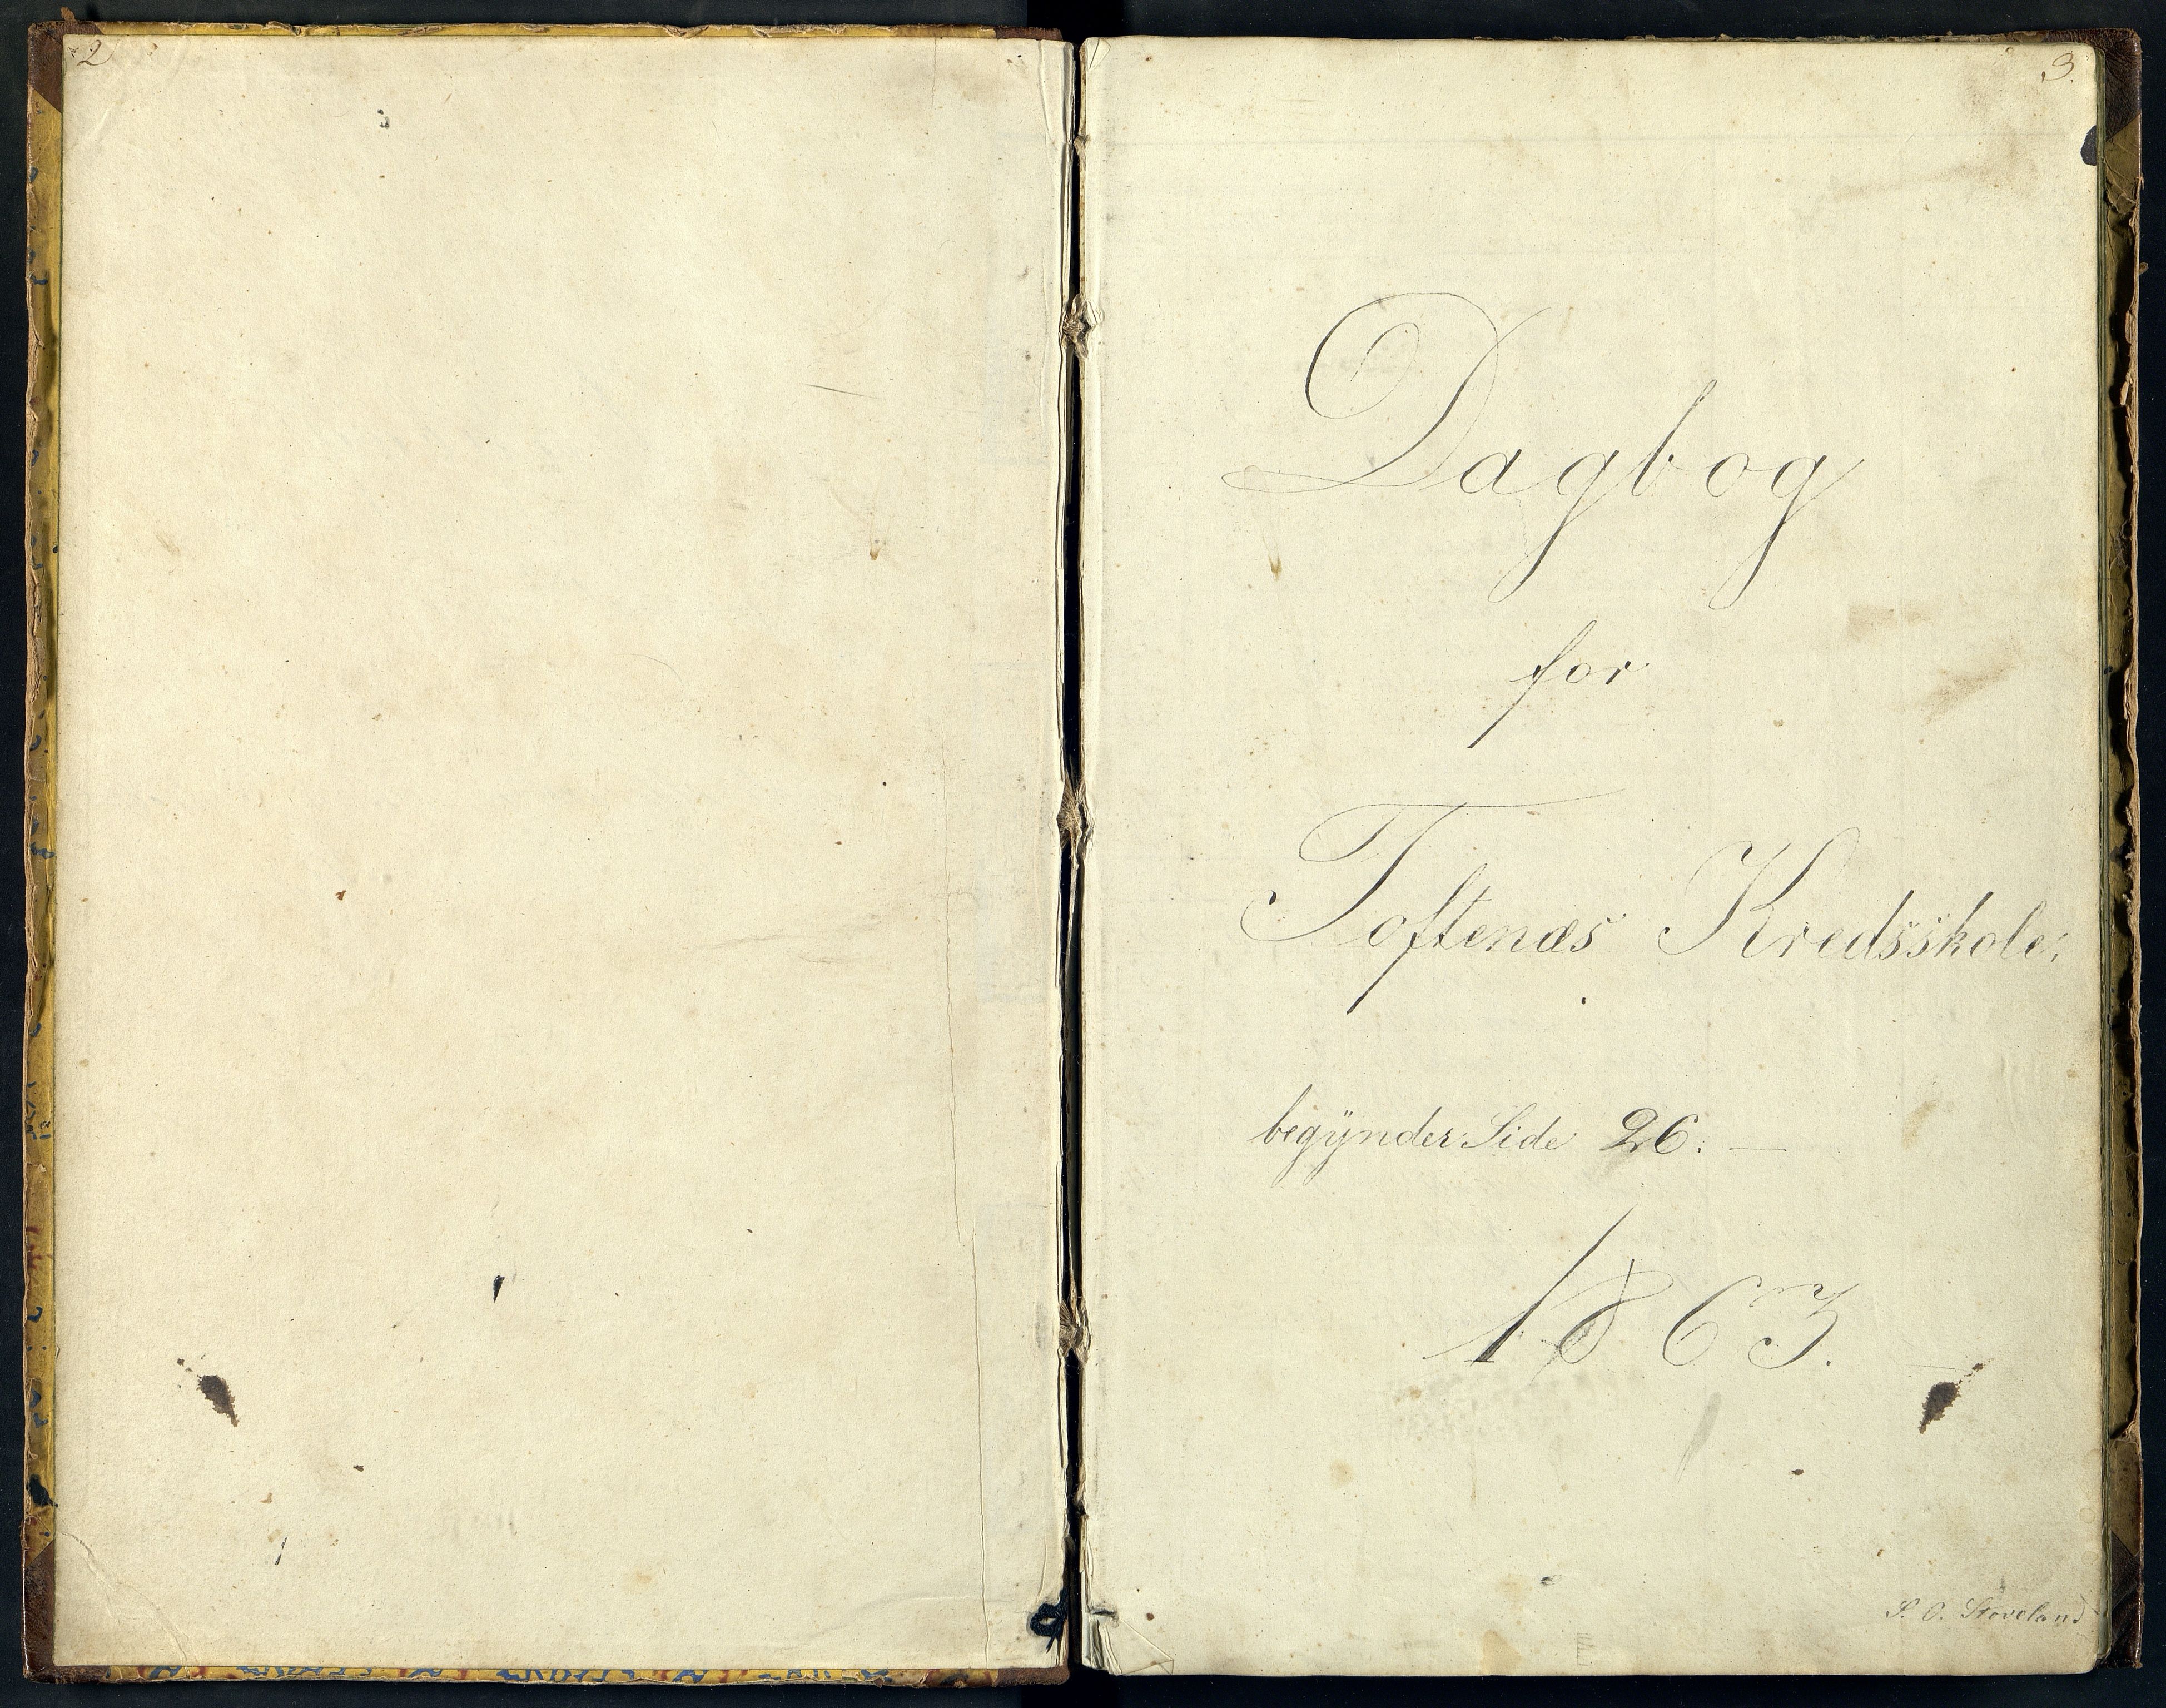 2
3.
Dagbog
for
Toftenæs Kredsskole;
begÿnder Side 26. —
1863.
S. O. Stoveland